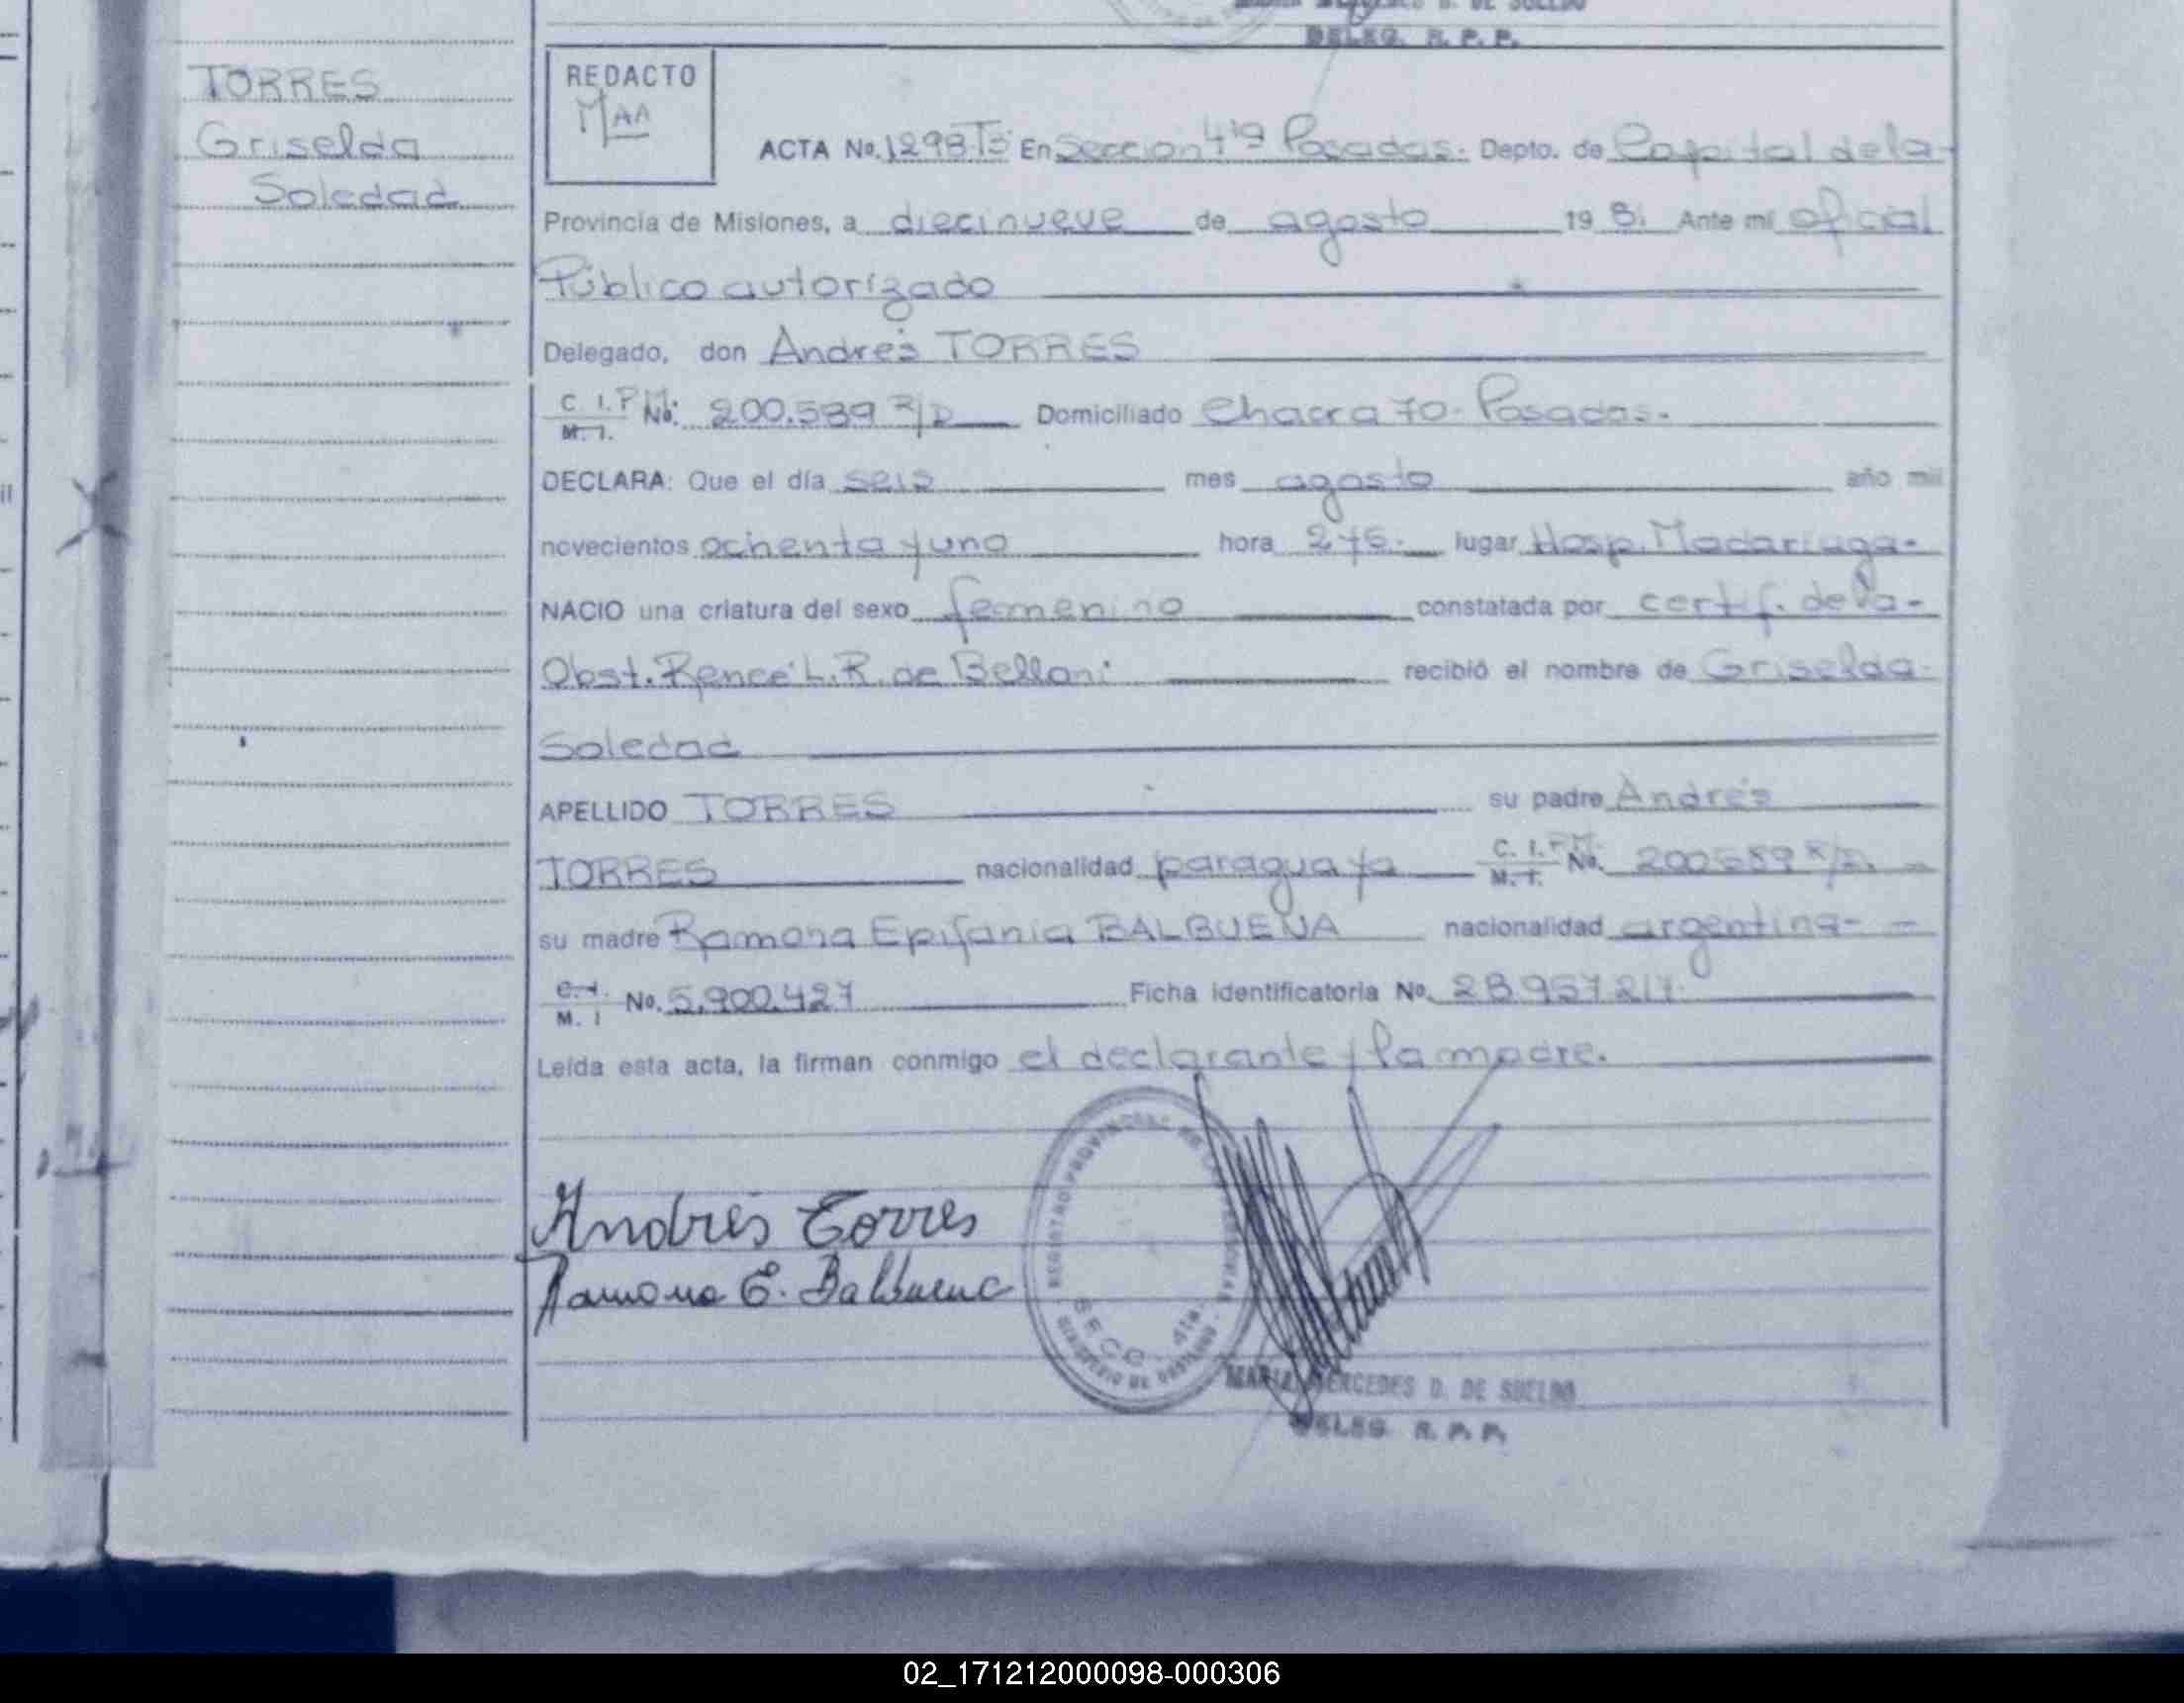 DELEG. R. P. P.
TORRES
Griselda
Soledad
REDACTO
MAA
ACTA No. 1298 En Seccion 4ta Posadas. Depto. de Capital de la
Provincia de Misiones, a diecinueve de agosto 1981. Ante mí oficial
Público autorizado
Delegado, don Andrés TORRES
C. I. P.M. No. 200.589 R/D Domiciliado Chacra 70- Posadas.
M. I.
DECLARA: Que el día seis mes agosto año mil
novecientos ochenta y uno hora lugar Hosp. Madariaga-
NACIO una criatura del sexo femenino constatada por certif. de la-
Obst. Reneé L. R. de Belloni recibió el nombre de Griselda
Soledad
APELLIDO TORRES su padre Andrés
TORRES nacionalidad paraguaya C. I. P.M. No. 200589 R/D.
M. I.
su madre Ramona Epifania BALBUENA nacionalidad argentina-
C. I.
M. I No. 5.900.427 Ficha identificatoria No. 28.957.217.
Leída esta acta, la firman conmigo el declarante y la madre.
Andrés Torres
Ramona E. Balbuena
REGISTRO PROVINCIAL DE LAS PERSONAS
SECC. 4ta.
MINISTERIO DE GOBIERNO
MARIA MERCEDES D. DE SUELDO
DELEG. R. P. P.
02_171212000098-000306